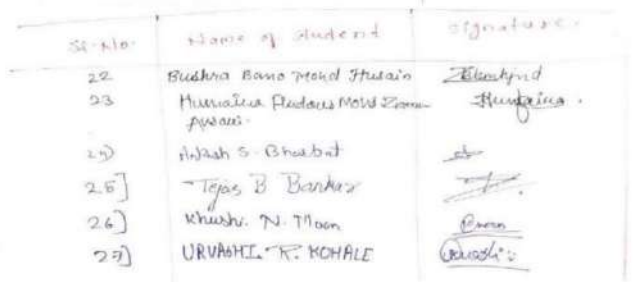 Sr. No. Name of Student Signature.
22 Bushra Bano Mohd Husain
23 Humaina Firdous Mohd
Ansari.
S. Bharbat
25] Tejas B Bankar
26] Khushi. N. Moon
27] URVASHI. R. KOHALE Urvashi